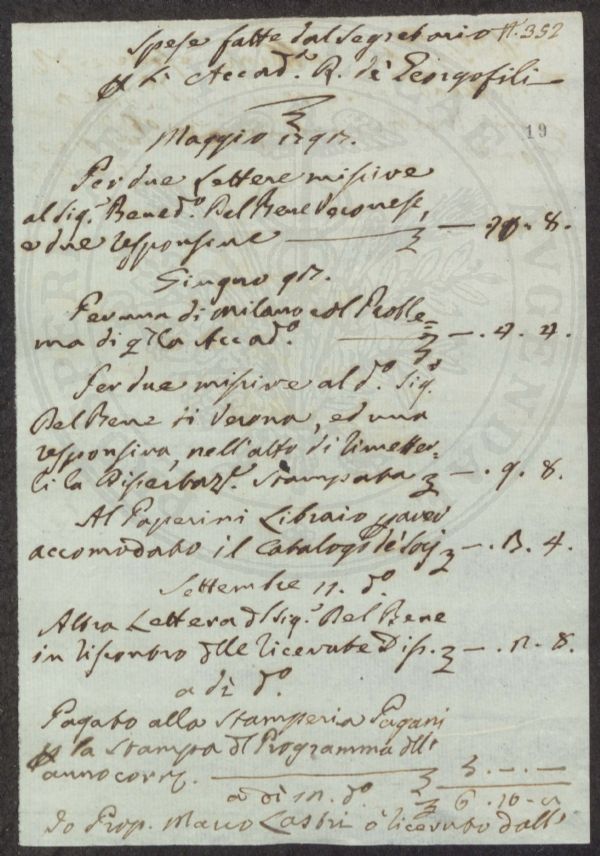 Spese fatte dal Segretario N. 352
P. la Accad.ª R. de' Georgofili
19
Maggio 1791.
Per due Lettere missive
al Sig.r Bened.o Del Bene Veronese,
e due responsive — 8.
Giugno 91.
Per una di Milano col Proble=
ma di q.lla Accad.ª — . 4. 4.
Per due missive al d.o Sig.r
Del Bene di Verona, ed una
responsiva, nell'atto di rimetter-
li la Dissertaz.e Stampata — . 9. 8.
Al Paperini Libraio p aver
accomodato il Catalogo de' Socj — . 13. 4.
Settembre 11. d.o
Altra Lettera al Sig.r Del Bene
in riscontro delle ricevute Diss. — . 8.
a dì d.o
Pagato alla Stamperia Pagani
P la Stampa del Programma dell'
anno corr.e 3. — . —
a dì d.o 6 . 10
Io Prop. Marco Lastri ò ricevuto dall'